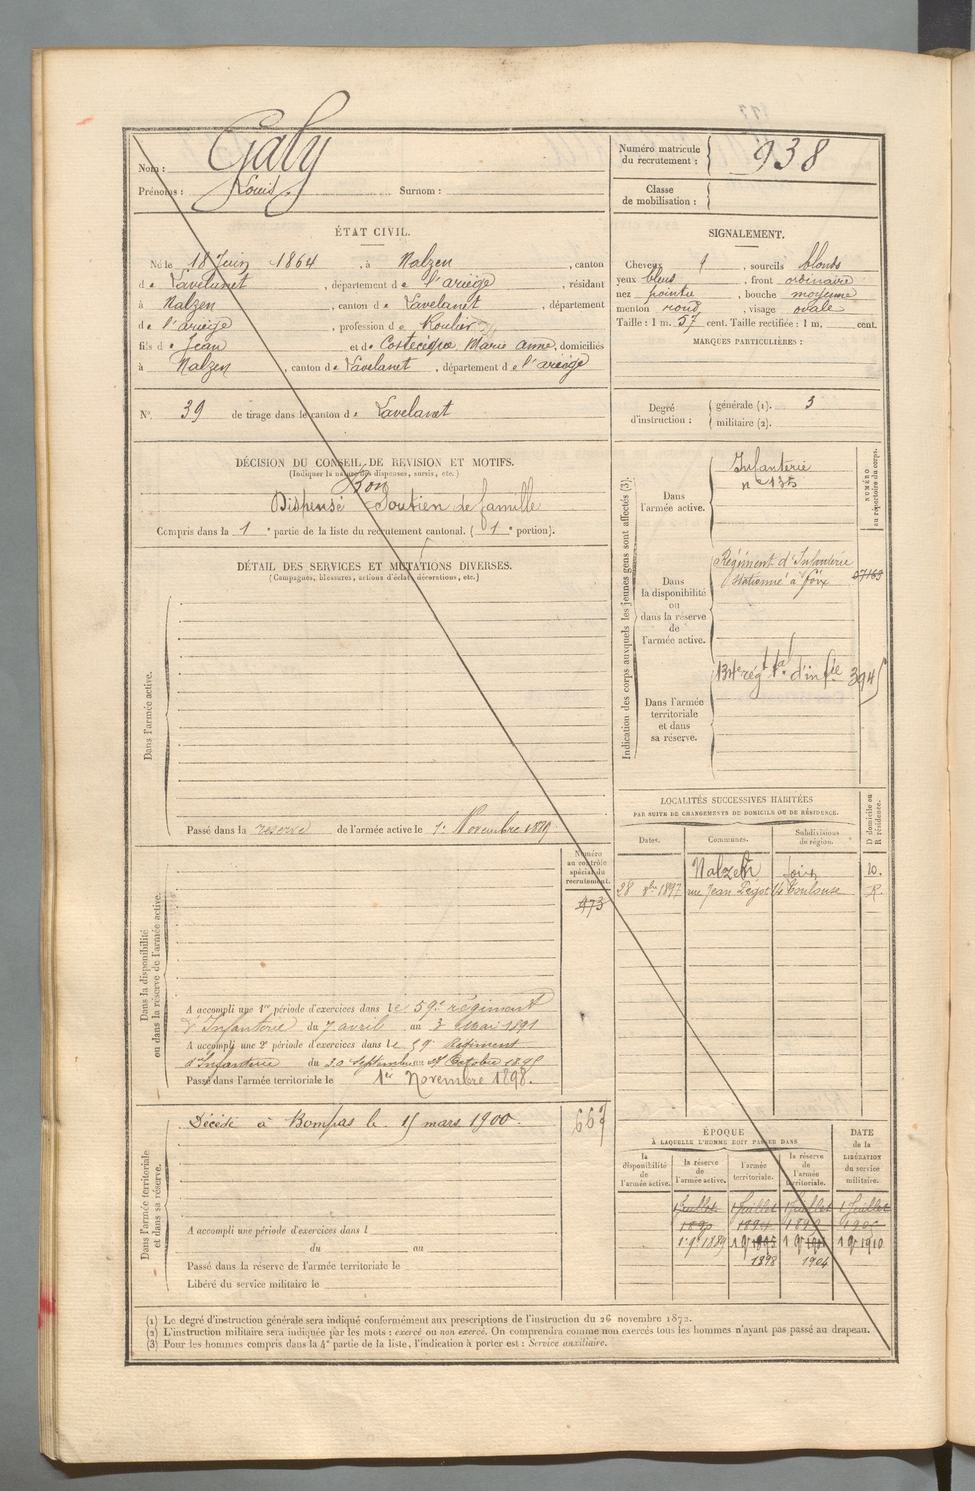 Nom : Galy
Prénoms : Louis Surnom :
Numéro matricule du recrutement : 938
Classe de mobilisation :
ÉTAT CIVIL.
Né le 18 Juin 1864, à Nalzen, canton
de Lavelanet, département de l'ariège, résidant
à Nalzen, canton de Lavelanet, département
de l'ariège, profession de Roulier
fils de Jean et de Marie anne, domiciliés
à Nalzen, canton de Lavelanet, département de l'ariège
N° 39 de tirage dans le canton de Lavelanet
SIGNALEMENT.
Cheveux, sourcils blonds
yeux bleus, front ordinaire
nez pointu, bouche moyenne
menton rond, visage ovale
Taille : 1 m. 57 cent. Taille rectifiée : 1 m. cent.
MARQUES PARTICULIÈRES :
Degré d'instruction : générale (1). 3
militaire (2).
DÉCISION DU CONSEIL DE REVISION ET MOTIFS.
(Indiquer la nature des dispenses, sursis, etc.)
Bon
Dispensé Soutien de famille
Compris dans la 1e partie de la liste du recrutement cantonal. (1e portion).
DÉTAIL DES SERVICES ET MUTATIONS DIVERSES.
(Campagnes, blessures, actions d'éclat, décorations, etc.)
Dans l'armée active.
Passé dans la reserve de l'armée active le 1er Novembre 1889
Dans la disponibilité
ou dans la réserve de l'armée active.
Numéro
au contrôle
spécial du
recrutement.
473
A accompli une 1re période d'exercices dans le 59e régiment
d'Infanterie du 7 avril au 3 Mai 1891
A accompli une 2e période d'exercices dans le 59e Régiment
d'Infanterie du 30 septembre au 27 Octobre 1895
Passé dans l'armée territoriale le 1er Novembre 1898.
Dans l'armée territoriale
et dans sa réserve.
Décédé à Bompas le 15 mars 1900.
667
A accompli une période d'exercices dans l
du au
Passé dans la réserve de l'armée territoriale le
Libéré du service militaire le
Indication des corps auxquels les jeunes gens sont affectés (3).
NUMÉRO
au répertoire du corps.
Dans
l'armée active.
Infanterie
Dans
la disponibilité
ou
dans la réserve
de
l'armée active.
Régiment d'Infanterie
stationné à foix
07163
Dans l'armée
territoriale
et dans
sa réserve.
134e régt tal d'infie
3945
LOCALITÉS SUCCESSIVES HABITÉES
PAR SUITE DE CHANGEMENTS DE DOMICILE OU DE RÉSIDENCE.
D domicile ou
R résidence.
Dates. Communes. Subdivisions de région.
Nalzen foix D.
28 1897 rue Jean 14 Toulouse R.
ÉPOQUE
À LAQUELLE L'HOMME DOIT PASSER DANS
DATE
de la
LIBÉRATION
du service
militaire.
la
disponibilité
de
l'armée active.
la réserve
de
l'armée active.
l'armée
territoriale.
la réserve
de
l'armée
territoriale.
1 Juillet 1 Juillet 1 Juillet 1 Juillet
1890
1889 1910
1898 1904
(1) Le degré d'instruction générale sera indiqué conformément aux prescriptions de l'instruction du 26 novembre 1872.
(2) L'instruction militaire sera indiquée par les mots : exercé ou non exercé. On comprendra comme non exercés tous les hommes n'ayant pas passé au drapeau.
(3) Pour les hommes compris dans la 4e partie de la liste, l'indication à porter est : Service auxiliaire.